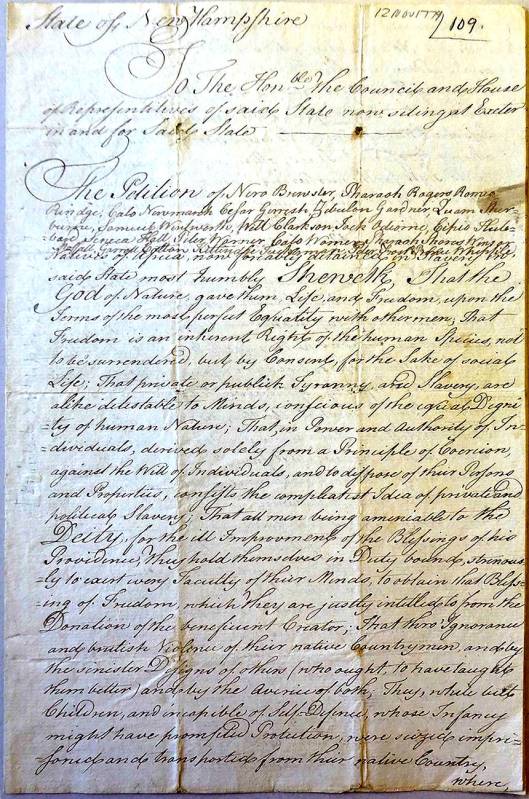 State of New Hampshire
12 Nov 1779
109.
To The Honble The Council and House
of Representitives of said State now siting at Exeter
in and for Said State
The Petition of Nero Brewster, Pharaoh Rogers Romeo
Rindge, Cato Newmarch Cesar Gerrish Zebulon Gardner, Quam Sher-
burne, Samuel Wentworth, Will Clarkson Jack Odiorne, Cipio Hub-
bard Seneca Hall, Peter Warner, Cato Warner, Pharaoh Shores, Winsor
Natives of Africa, now forcibly detained in Slavery, in
said State most humbly Sheweth, That the
God of Nature, gave them, Life, and Freedom, upon the
Terms of the most perfect Equality with other men; That
Freedom is an inherent Right of the human Species, not
to be surrendered, but by Consent, for the Sake of social
Life; That private or publick Tyranny, and Slavery, are
alike detestable to Minds, conscious of the equal Digni-
ty of human Nature; That, in Power and Authority of In-
=dividuals, derived solely from a Principle of Coercion,
against the Will of Individuals, and to dispose of their Persons
and Properties, consists the compleatest Idea of private and
political Slavery; That all men being ameniable to the
Deity, for the ill Improvement of the Blessings of his
Providence, They hold themselves in Duty bound, strenuous-
=ly to exert every Faculty of their Minds, to obtain that Bless-
=ing of Freedom, which they are justly intitled to from the
Donation of the beneficent Creator; That thro Ignorance
and brutish Violence of their native Countrymen, and by
the sinister Designs of others (who ought, to have taught
them better) and by the Avarice of both; They, while but
Children, and incapible of Self-Defence, whose Infancy
might have prompted Protection, were seized impri-
=soned and transported from their native Country,
where,